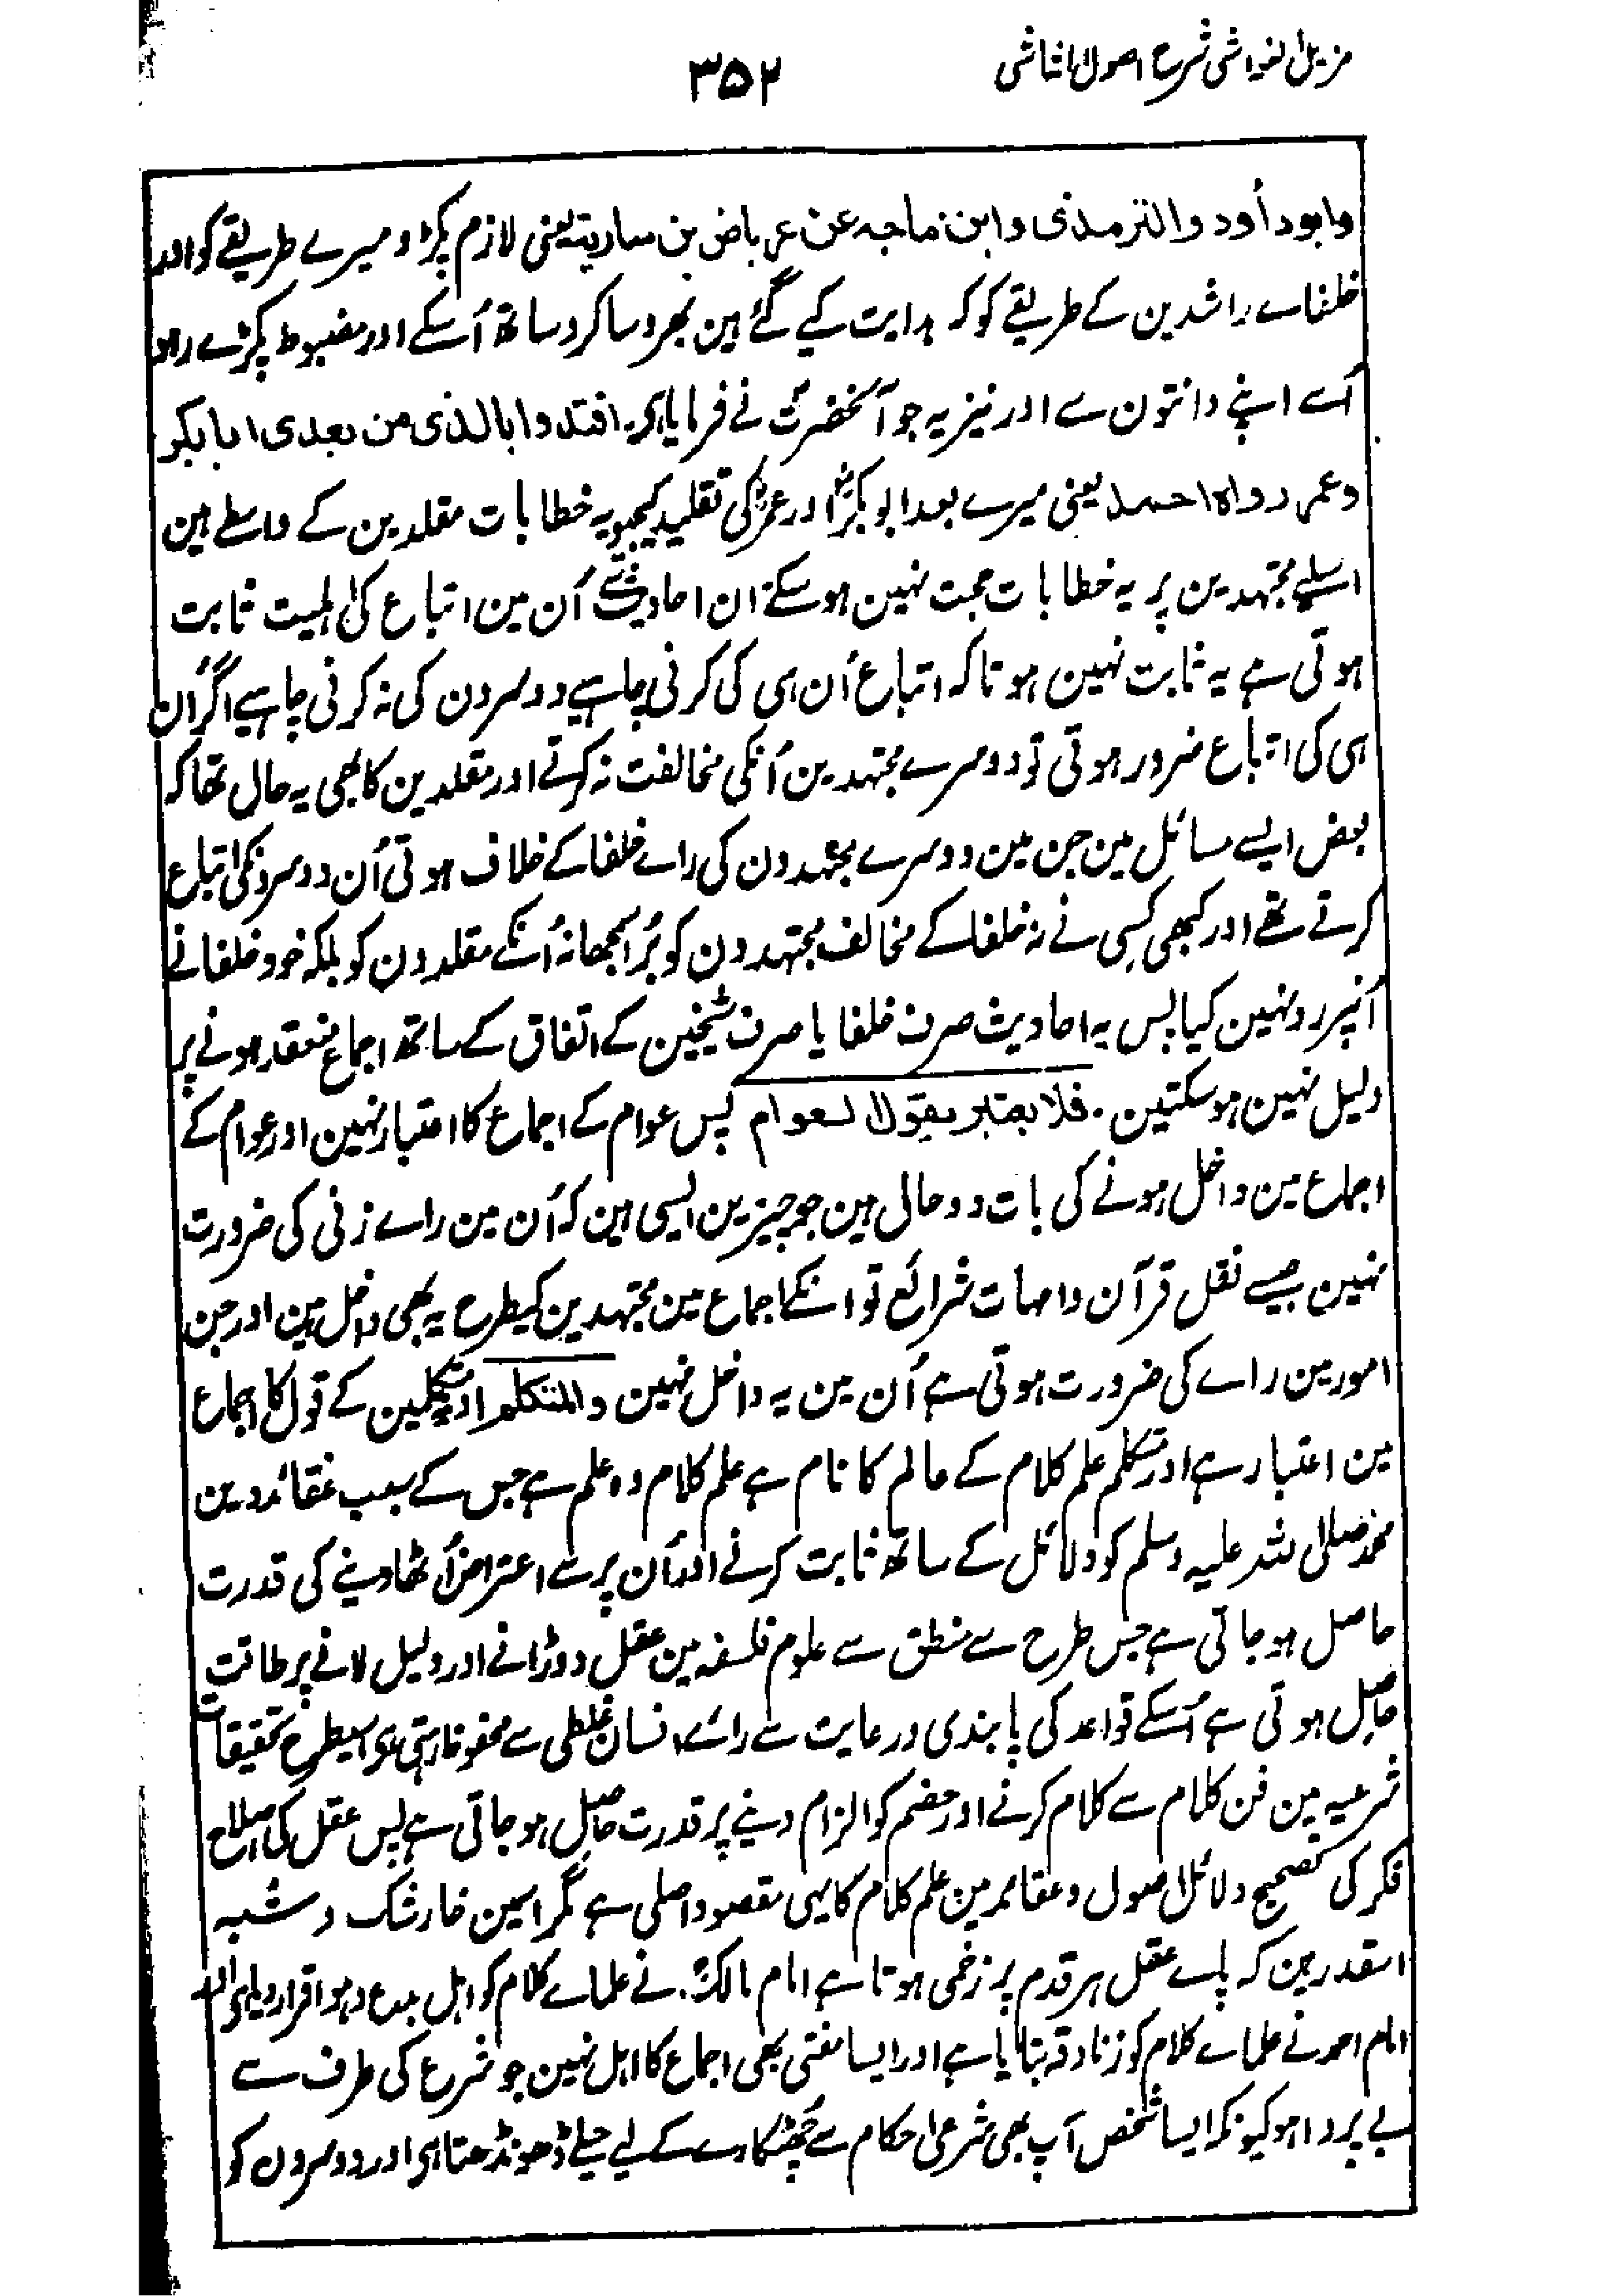 مزیل الغواشی شرح اصول الشاشی
۳۵۲
وابوداؤد والترمذی وابن ماجہ عن عرباض بن ساریۃ یعنی لازم پکڑو میرے طریقے کو اور
خلفاے راشدین کے طریقے کو کہ ہدایت کیے گئے ہین بھروسا کرو ساتھ اُسکے اور مضبوط پکڑے رہو
اُسے اپنے دانتون سے اور نیز یہ جو آنحضرتؐ نے فرمایا ہی۔ اقتدوا بالذی من بعدی ابابکر
وعمر رواہ احمد یعنی میرے بعد ابوبکرؓ اور عمرؓ کی تقلید کیجیو یہ خطابات مقلدین کے واسطے ہین
اسلیے مجتہدین پر یہ خطابات حجت نہین ہوسکتے ان احادیث سے اُن مین اتباع کی اہلیت ثابت
ہوتی ہے یہ ثابت نہین ہوتا کہ اتباع اُن ہی کی کرنی چاہیے دوسرون کی نہ کرنی چاہیے اگر اُن
ہی کی اتباع ضرور ہوتی تو دوسرے مجتہدین اُنکی مخالفت نہ کرتے اور مقلدین کا بھی یہ حال تھا کہ
بعض ایسے مسائل مین جن مین دوسرے مجتہدون کی راے خلفا کے خلاف ہوتی اُن دوسرونکی اتباع
کرتے تھے اور کبھی کسی نے نہ خلفا کے مخالف مجتہدون کو بُرا سمجھا نہ اُنکے مقلدون کو بلکہ خود خلفا نے
اُنپر رد نہین کیا پس یہ احادیث صرف خلفا یا صرف شیخین کے اتفاق کے ساتھ اجماع منعقد ہونے پر
دلیل نہین ہوسکتین۔ فلا یعتبر بقول العوام پس عوام کے اجماع کا اعتبار نہین اور عوام کے
اجماع مین داخل ہونے کی بات دو حالی ہین جو چیزین ایسی ہین کہ اُن مین راے زنی کی ضرورت
نہین جیسے نقل قرآن وامہات شرائع تو اسکے اجماع مین مجتہدین کیطرح یہ بھی داخل ہین اور جن
امور مین راے کی ضرورت ہوتی ہے اُن مین یہ داخل نہین والمتکلم اور متکلمین کے قول کا اجماع
مین اعتبار ہے اور متکلم علم کلام کے عالم کا نام ہے علم کلام وہ علم ہے جس کے سبب عقائد دین
محمد صلی اللہ علیہ وسلم کو دلائل کے ساتھ ثابت کرنے اور اُن پر سے اعتراض اُٹھا دینے کی قدرت
حاصل ہو جاتی ہے جس طرح سے منطق سے علوم فلسفہ مین عقل دوڑانے اور دلیل لانے پر طاقت
حاصل ہوتی ہے اُسکے قواعد کی پابندی ورعایت سے راے انسان غلطی سے محفوظ رہتی ہی اسیطرح تحقیقات
شرعیہ مین فن کلام سے کلام کرنے اور خصم کو الزام دینے پر قدرت حاصل ہو جاتی ہے پس عقل کی اصلاح
فکر کی تصحیح دلائل اصول وعقائد مین علم کلام کا یہی مقصود اصلی ہے مگر اسمین خار شک وشبہ
اسقدر ہین کہ پاے عقل ہر قدم پر زخمی ہوتا ہے امام مالکؒ نے علماے کلام کو اہل بدع وہوا قرار دیا ہی اور
امام احمد نے علماے کلام کو زنادقہ بتایا ہے اور ایسا مفتی بھی اجماع کا اہل نہین جو شرع کی طرف سے
بے پروا ہو کیونکہ ایسا شخص آپ بھی شرعی احکام سے چھٹکارے کے لیے حیلے ڈھونڈھتا ہی اور دوسرون کو